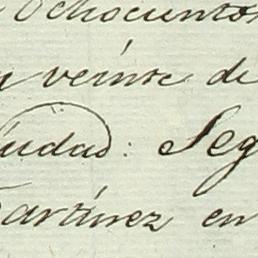 Ochocientos
y veinte de
iudad: Seg
artinez en